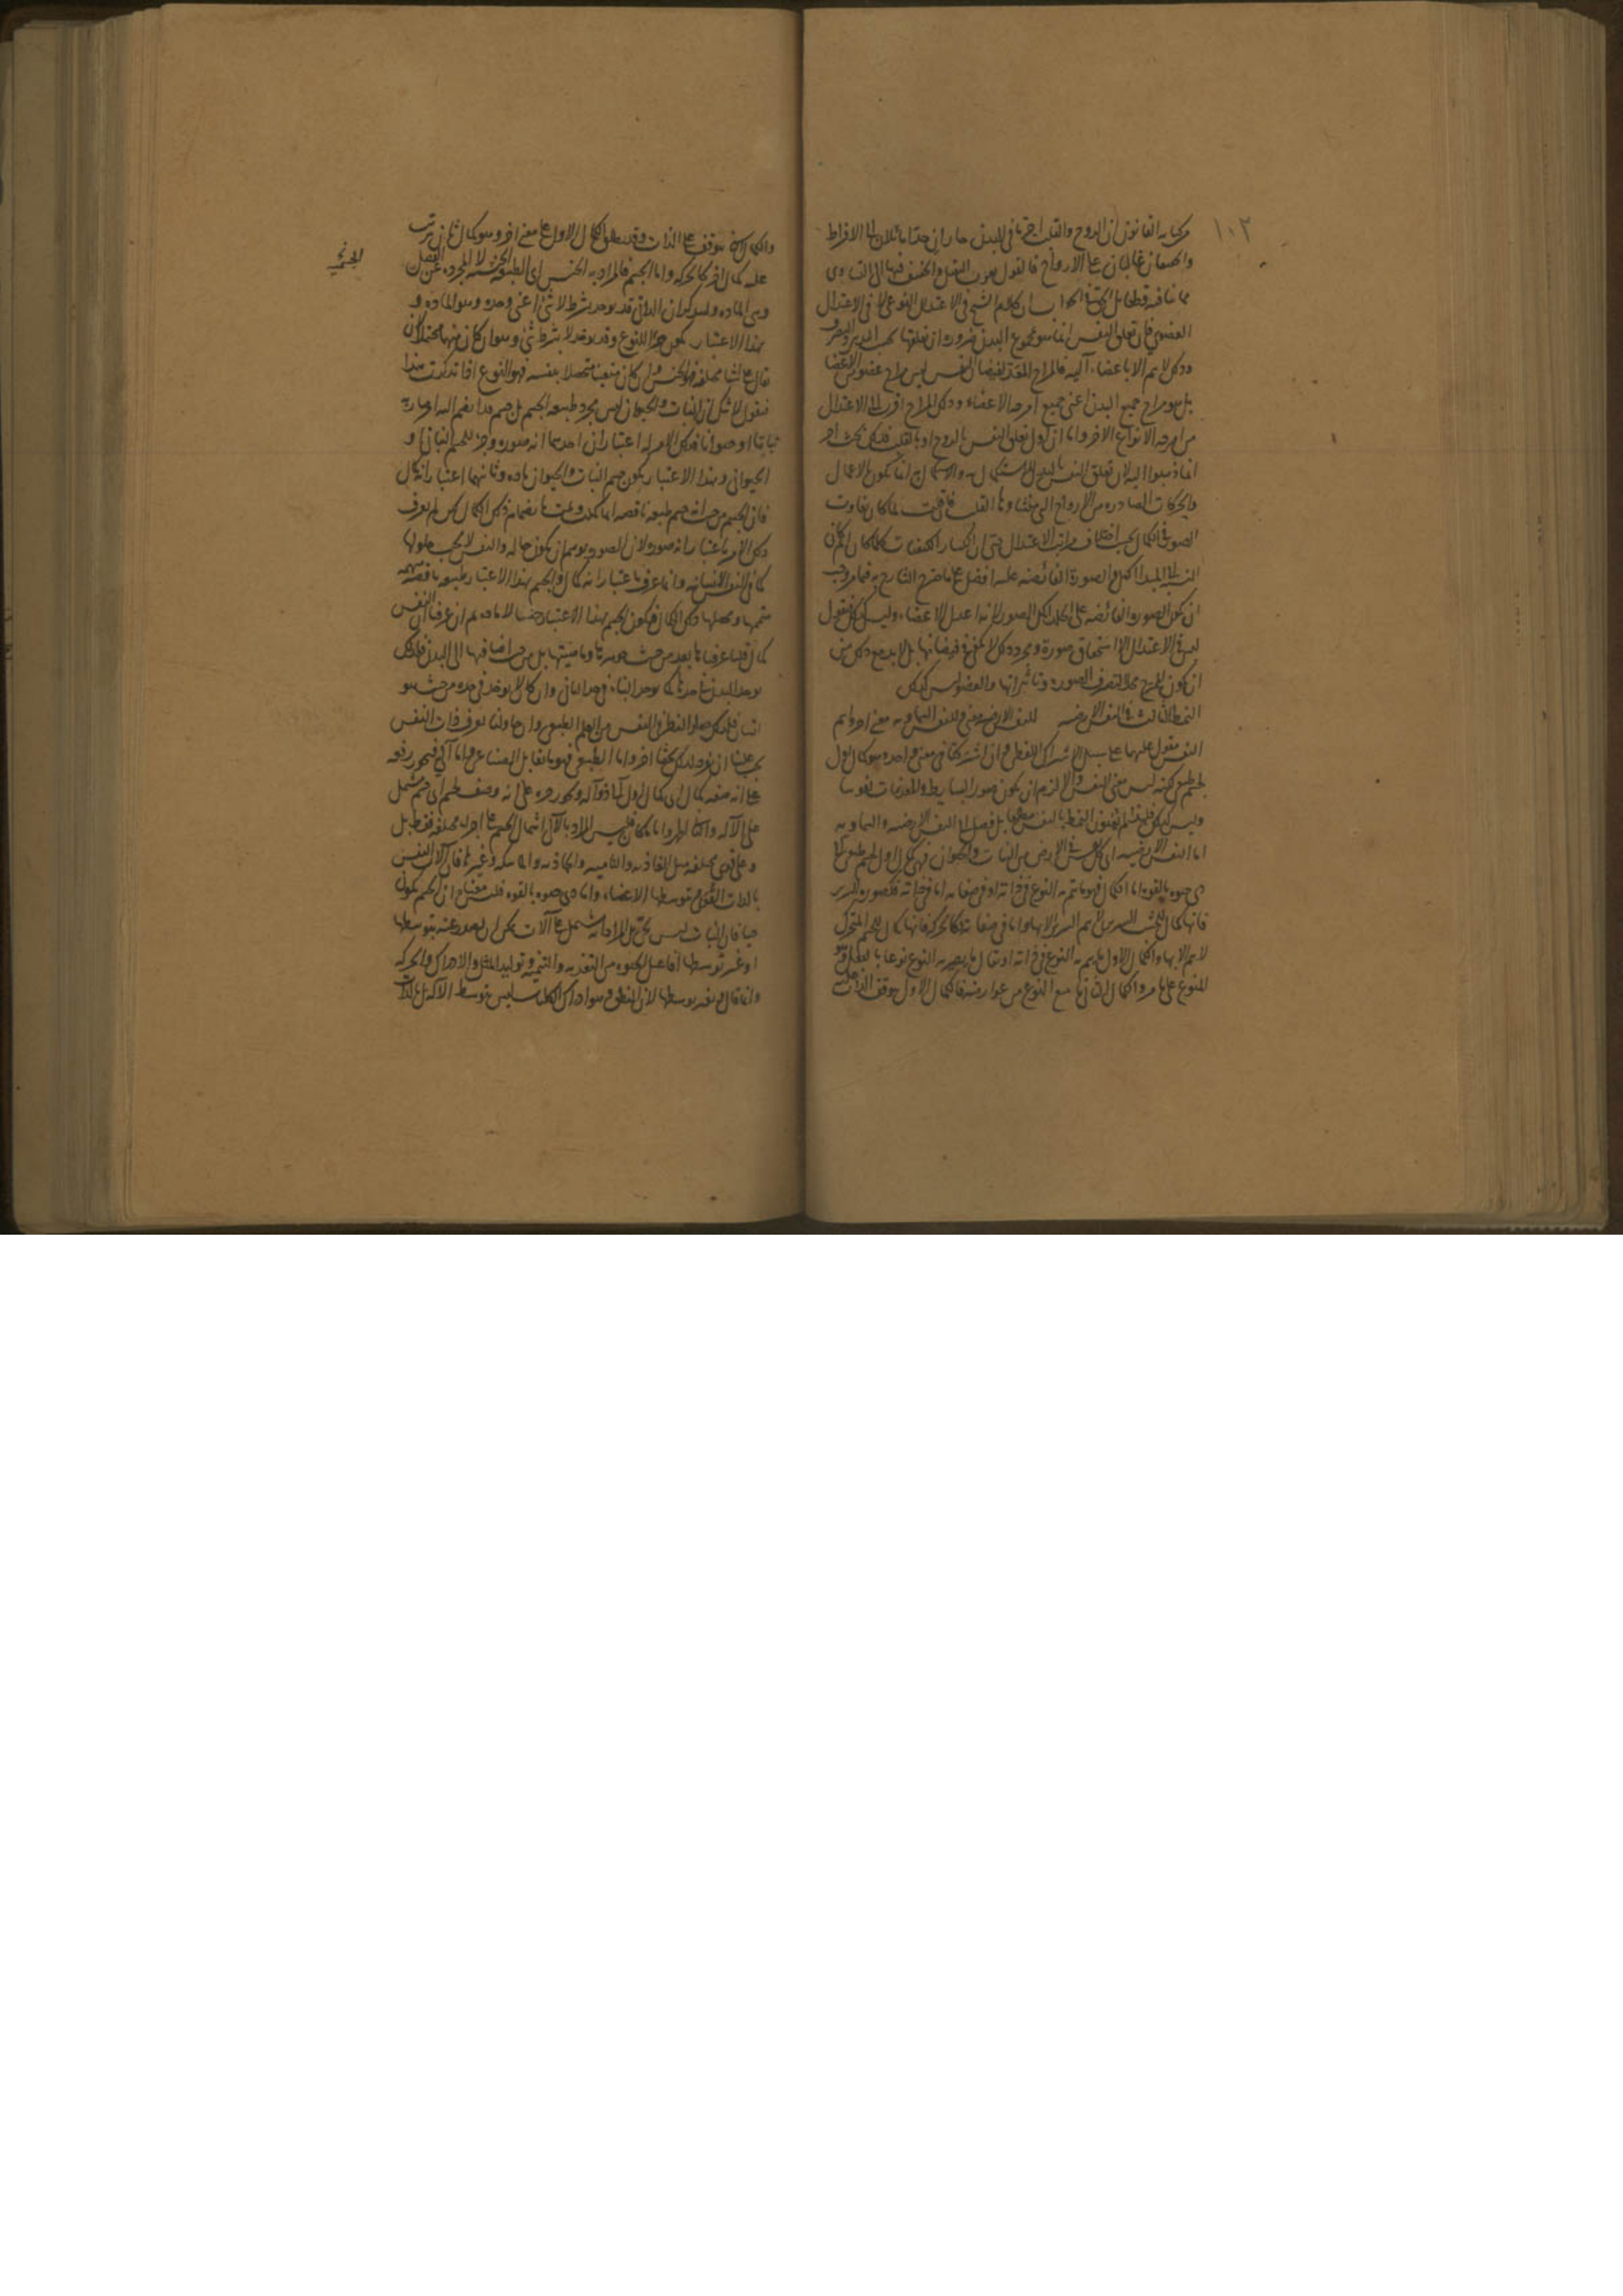 ١٠٣
من كتابه القانون ان الروح والقلب احر ما في البدن حاران جدا مائلان الى الافراط
العضوي فان تعلق النفس انما هو بمجموع البدن ضرورة ان تعلقها بحسب التدبير والتصرف
وذلك لا يتم الا باعضاء آلية فالمزاج المعد لفيضان النفس ليس مزاج عضو من الاعضا
بل هو مزاج جميع البدن اعني جميع امزجة الاعضاء وذلك المزاج اقرب الى الاعتدال
من امزجة الانواع الاخر واما ان اول تعلق النفس بالروح او بالقلب فذلك بحث اخر
انما ذهبوا اليه لان تعلق النفس بالبدن للاستكمال والاستكمال انما يكون بالاعمال
والحركات الصادرة من الارواح التي منشاؤها القلب
الصورة في الكمال بحسب اختلاف مراتب الاعتدال حتى ان انكسار الكيفيات كلما كان اتم كان
النسبة الى المبدأ اكمل والصورة الفائضة عليه افضل على ما صرح الشارح به فيما مر وجب
ان يكون الصورة الفائضة على الجلد اكمل الصور لانه اعدل الاعضاء وليس كذلك فنقول
ليس في الاعتدال الا استحقاق صورة ومجرد ذلك لا يكفي في فيضانها بل لا بد مع ذلك من
ان يكون المزج محلا لتصرف الصورة وتاثيراتها والعضو ليس كذلك
النمط الثالث في النفس الارضية للنفس الارضية والنفس السماوية معنى
النفس مقول عليهما على سبيل الاشتراك اللفظي وان اشتركتا في معنى واحد هو كمال اول
لجسم طبيعي لكنه ليس معنى النفس والا لزم ان يكون صور البسايط والمعدنيات نفوسا
وليس كذلك فلهذا لم يعنون النمط بالنفس مطلقا بل فصل الى النفس الارضية والسماوية
اما النفس الارضية اي كل نفس في الارض من النبات والحيوان فهي كمال اول لجسم طبيعي آلي
ذي حيوة بالقوة اما الكمال فهو ما يتم به النوع في ذاته او في صفاته اما في ذاته فكصورة السرير
فانها كمال للخشب السريري لا يتم السرير الا بها واما في صفاته كالحركة فانها كمال للجسم المتحرك
لا يتم الا بها والكمال الاول ما يتم به النوع في ذاته او يقال ما يصير به النوع نوعا بالفعل وهو
المنوع على ما مر والكمال الثاني ما يتبع النوع من عوارضه فالكمال الاول يتوقف الذات عليه
والكمال الثاني يتوقف على الذات وقد يطلق الكمال الاول على معنى اخر وهو كمال ثان يترتب
عليه كمال اخر كالحركة واما الجسم فالمراد به الجنس اي الطبيعة الجنسية لا المجردة عن الفصل
الجزئي
وهي المادة وليذكر ان الذاتي قد يوخذ بشرط لا شئ اعني وحده وهو المادة و
بهذا الاعتبار يكون جزءا للنوع وقد يوخذ لا بشرط شئ وهو ان كان مبهما محتملا لان
يقال على اشيا مختلفة فهو الجنس وان كان متعينا متحصلا بنفسه فهو النوع اذا تذكرت هذا
فنقول لا شك ان النبات والحيوان ليس مجرد طبيعة الجسم بل جسم قد انضم اليه امر صار به
نباتا او حيوانا فذلك الامر له اعتباران احدهما انه صورة وجزء للجسم النباتي و
الحيواني وبهذا الاعتبار يكون جسم النبات والحيوان مادة وثانيهما اعتبار انه كمال
فان الجسم من حيث انه جسم طبيعة ناقصة انما كملت وتمت بانضمام ذلك الكمال
ذلك الامر باعتبار انه صورة لان الصورة يوهم ان يكون حالة والنفس لا يجب حلولها
كما في النفس الانسانية وانما عرف باعتبار انه كمال والجسم بهذا الاعتبار طبيعة ناقصة مبهمة
متممها ومحصلها ذلك الكمال فيكون الجسم بهذا الاعتبار جنسا لا مادة
كمال قلنا عرفناها بعد من حيث جوهريتها وماهيتها بل من حيث اضافتها الى البدن
يوخذ البدن في حدها كما يوخذ البناء في حد الباني وان كان لا يوخذ في حده من حيث هو
انسان فلذلك صار النظر في النفس من العلم الطبيعي وان حاولنا تعرف ذات النفس
يجب علينا ان نفرد لذلك بحثا اخر واما الطبيعي فهو ما يقابل الصناعي واما آلي فيجوز رفعه
على انه صفة كمال اي كمال اول آلي ذو آلة ويجوز جره على انه وصف لجسم اي جسم مشتمل
على الآلة
وعلى قوى مختلفة مثل الغاذية والنامية والجاذبة والماسكة وغيرها فان آلات النفس
بالذات القوى وبتوسطها الاعضاء واما ذي حيوة بالقوة فليس معناه ان الجسم يكون
حيا فان النبات ليس بحي بل المراد انه يشتمل على آلات يمكن ان يصدر عنه بتوسطها
او غير توسطها افاعيل الحيوة من التغذية والتنمية وتوليد المثل والادراك والحركة
وانما قال وبغير توسطها لان النطق وهو ادراك الكليات ليس بتوسط الآلة بل بالذات